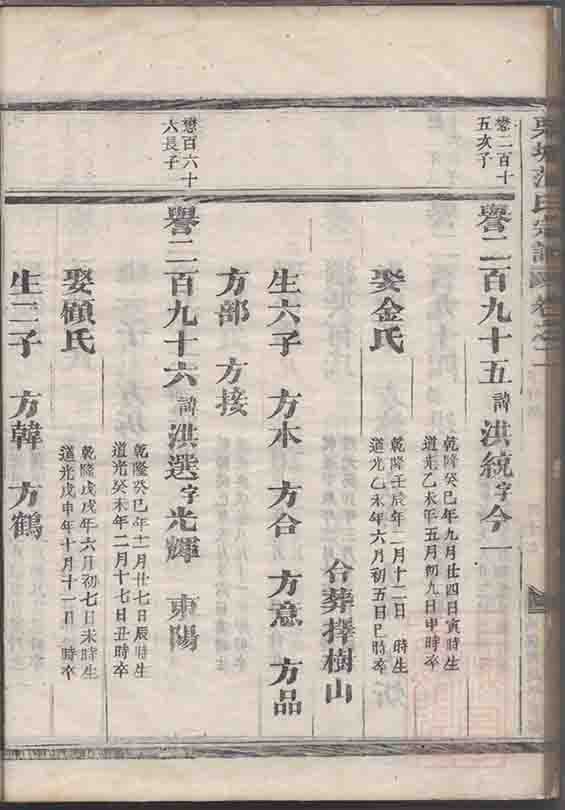 栗城范氏宗譜 卷之二
懋二百十
五亥子
譽二百九十五 諱洪統字今一
乾隆癸巳年九月廿四日寅時生
道光乙未年五月初九日申時卒
娶金氏
乾隆壬辰年二月十二日 時生
道光乙未年六月初五日巳時卒
合葬擇樹山
生六子 方本 方合 方意 方品
方部 方接
懋百六十
六長子
譽二百九十六 諱洪選字光輝 東陽
乾隆癸巳年十二月廿七日辰時生
道光癸未年二月十七日丑時卒
娶顧氏
乾隆戊戌年六月初七日未時生
道光戊申年十月十一日 時卒
生二子 方韓 方鶴